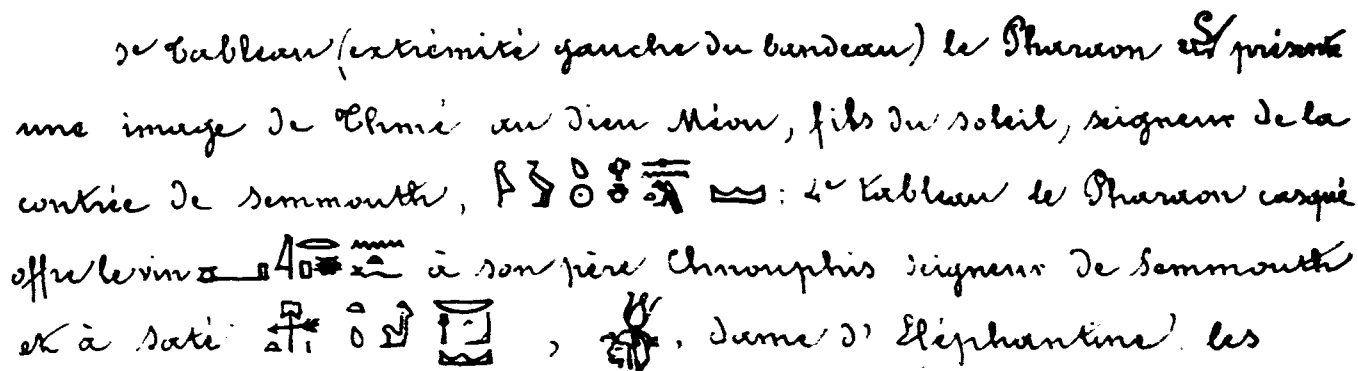 3e tableau (extrémité gauche du bandeau) le Pharaon présente
une image de Thmé au dieu Méou, fils du soleil, seigneur de la
contrée de Semmouth, : 4e tableau le Pharaon casqué
offre le vin à son père Chnouphis seigneur de Semmouth
et à Saté , . dame d'Eléphantine les